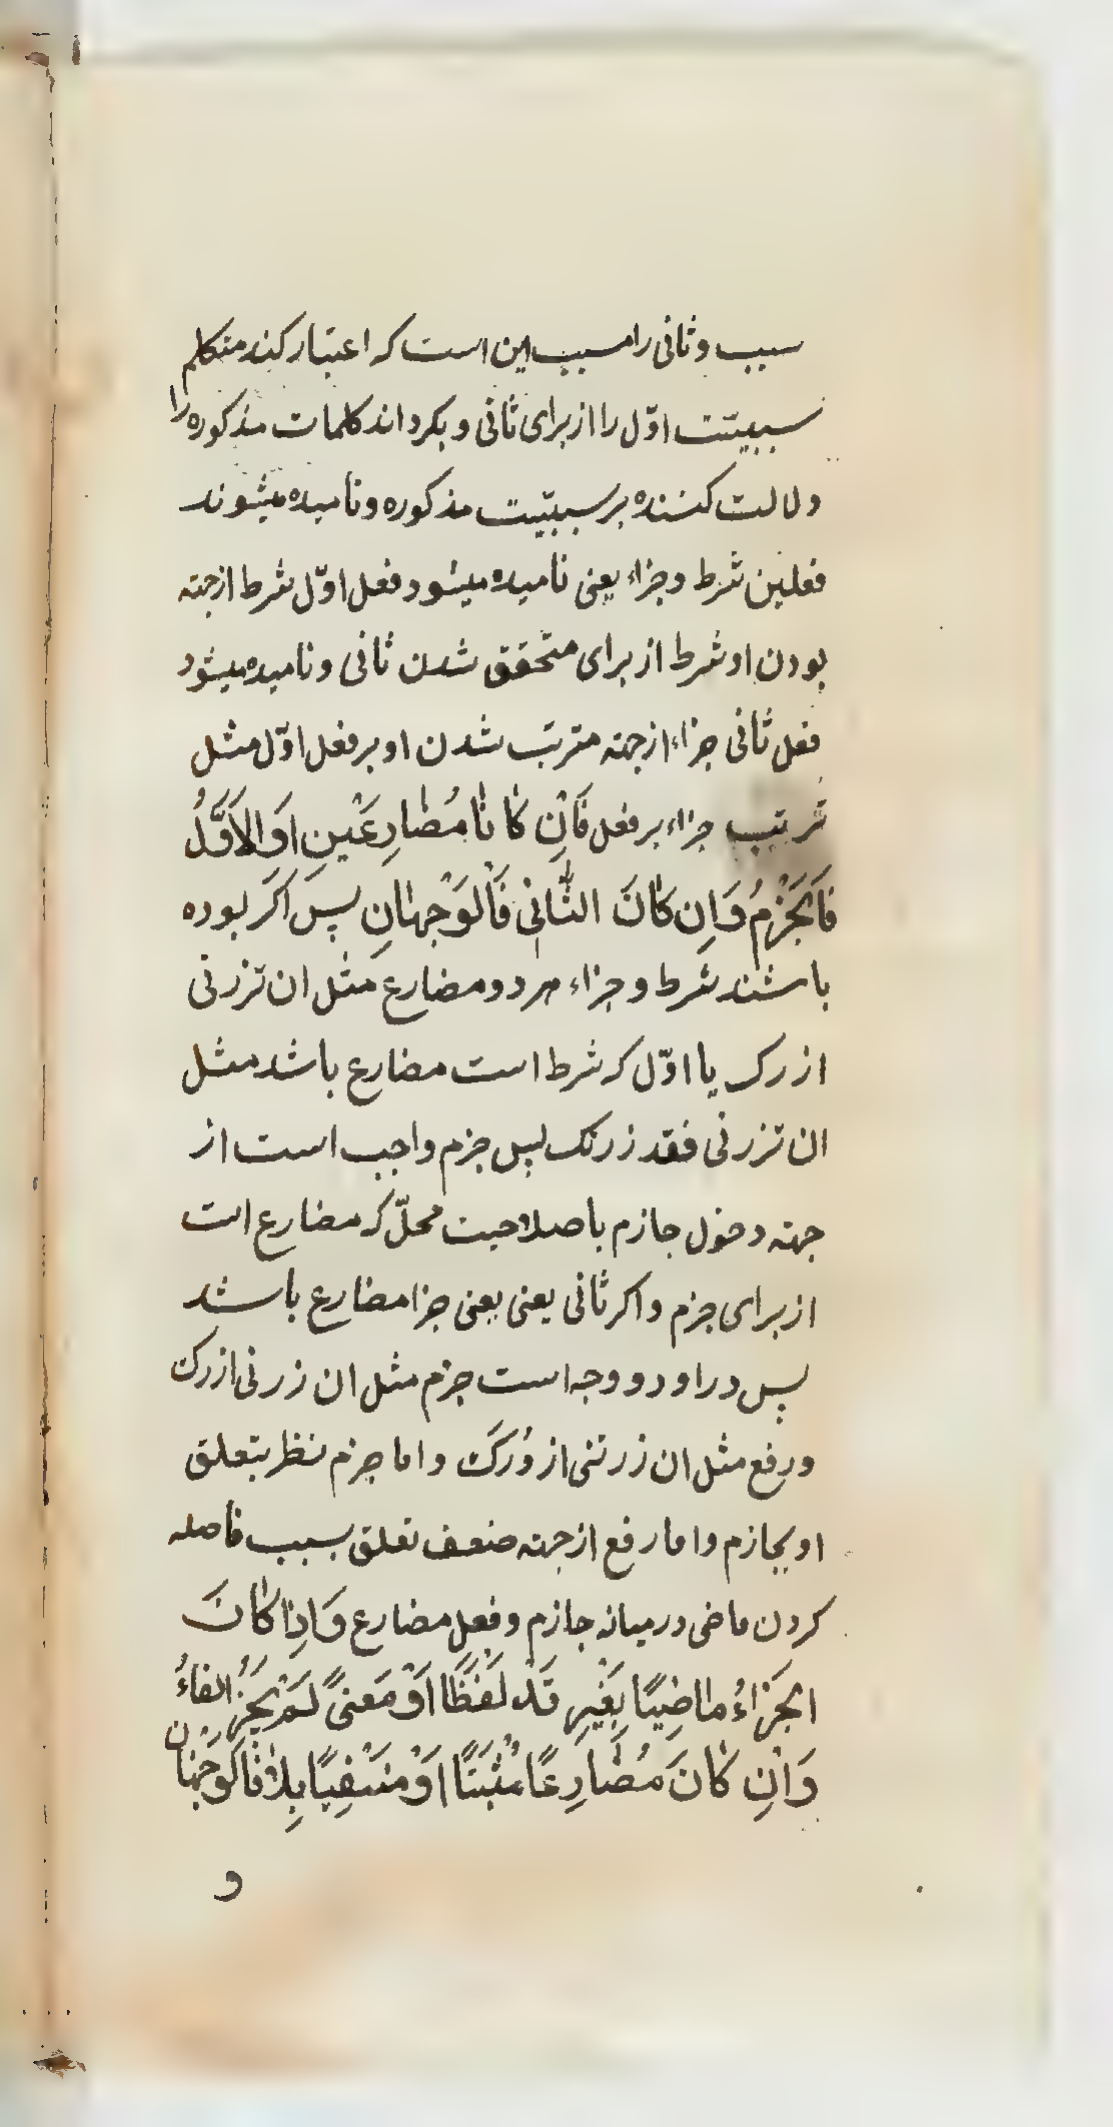 سبب وثانی را مسبب این است که اعتبار کند متکلم
سببیّت اوّل را از برای ثانی و بکرداند کلمات مذکوره را
دلالت کننده بر سببیّت مذکوره و نامیده میشوند
فعلین شرط وجزاء یعنی نامیده میشود فعل اوّل شرط از جهته
بودن او شرط از برای متحقق شدن ثانی و نامیده میشود
فعل ثانی جزاء از جهته مترتب شدن او بر فعل اوّل مثل
ترتیب جزاء بر فعل فَاَنِ کٰا نٰا مُضٰارِعَیْنِ اَوِالاَوَّلُ
فَاَلجَزْمُ وَاِن کٰانَ الثّٰانِی فَالْوَجْهٰانِ پس اکر بوده
باشند شرط وجزاء هر دو مضارع مثل ان تزرنی
ازرک یا اوّل که شرط است مضارع باشد مثل
ان تزرنی فقد زرتک پس جزم واجب است از
جهته دخول جازم با صلاحیت محلّ که مضارع است
از برای جزم و اکر ثانی یعنی یعنی جزا مضارع باشد
پس در او دو وجه است جزم مثل ان زرنی ازرک
ورفع مثل ان زرتنی ازوُرکَ و اما جزم نظر بتعلق
او بجازم و اما رفع از جهته ضعف تعلق بسبب فاصله
کردن ماضی در میانه جازم و فعل مضارع وَاِذٰا کٰانَ
الجَزٰاءُ مٰاضِیًا بِغَیْرِ قَدْ لَفْظًا اَوْ مَعنیً لَمْ یَجُزِ الفٰاءُ
وَانِ کٰانَ مُضٰارِعًا مُثْبَتًا اَوْ مَنْفِیًا بِلاٰ فَالْوَجْهٰان
و